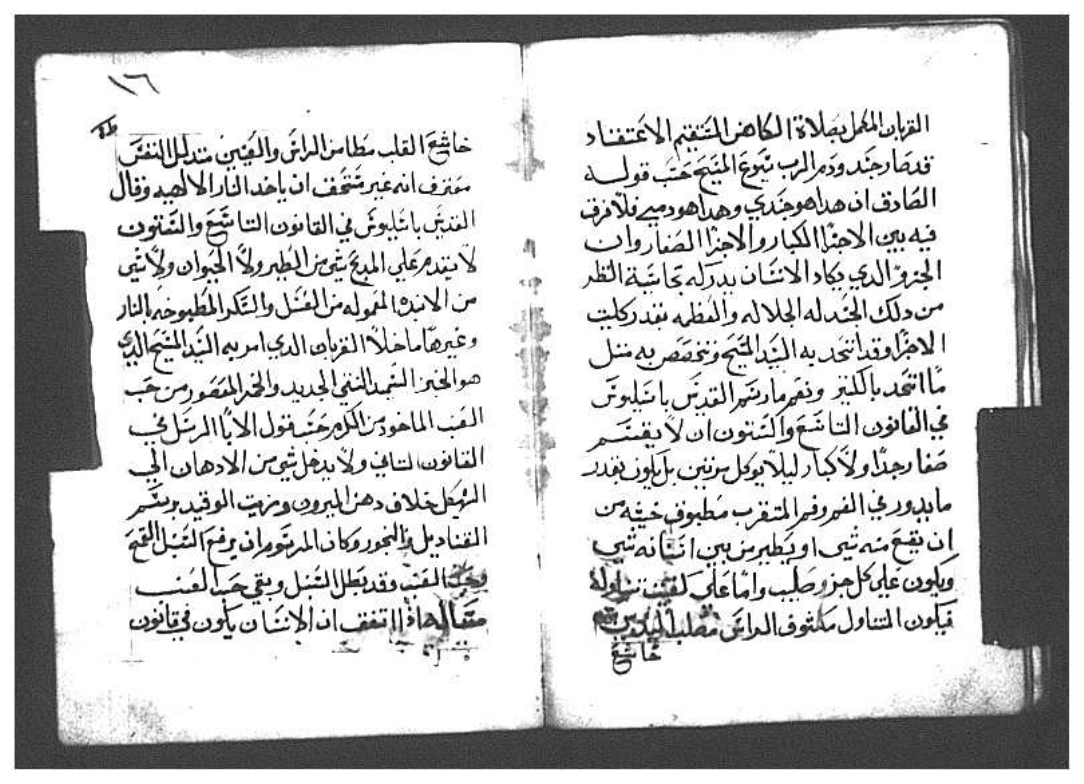 القربان المكمل بصلاة الكاهن المستقيم الاعتقاد
قد صار جسد ودم الرب يسوع المسيح حسب قوله
الصادق ان هدا هو جسدي وهدا هو دمي فلا فرق
فيه بين الاجزا الكبار والاجزا الصغار وان
الجزو الدي يكاد الانسان يدركه بحاسة النظر
من دلك الجسد له الجلاله والعظمه بقدر كلية
الاجزا وقد اتحد به السيد المسيح وتخصص به مثل
ما اتحد بالكثير ونعم ما رسم القديس باسيليوس
في القانون التاسع والستون ان لا يقسم
صغار جدا ولا كبار ليلا يوكل مرتين بل يكون بقدر
ما يدور في الفم وفم المتقرب مطبوق خشيه من
ان يقع منه شي او يطير من بين اسنانه شي
ويكون علي كل جزو صليب واما علي كيفية تناوله
فيكون المتناول مكشوف الراس مصلب اليدين
خاشع
١٦
خاشع القلب مطامن الراس والعينين متدلل النفس
معترف انه غير مستحق ان ياخد النار الالهيه وقال
القديس باسيليوس في القانون التاسع والستون
لا يقدم علي المدبح شي من الطير ولا الحيوان ولا شي
من الانبده المعموله من العسل والسكر المطبوخه بالنار
وغيرها ما خلا القربان الدي امر به السيد المسيح الدي
هو الخبز السميد النقي الجديد والخمر المعصور من حب
العنب الماخود من الكرم حسب قول الابا الرسل في
القانون الثاني ولا يدخل شي من الادهان الي
الهيكل خلاف دهن الميرون وزيت الوقيد برسم
القناديل والبخور وكان المرسوم ان يرفع السنبل القمح
وحب العنب وقد بطل السنبل وبقي حب العنب
مقاله اتفق ان الانسان يكون في قانون